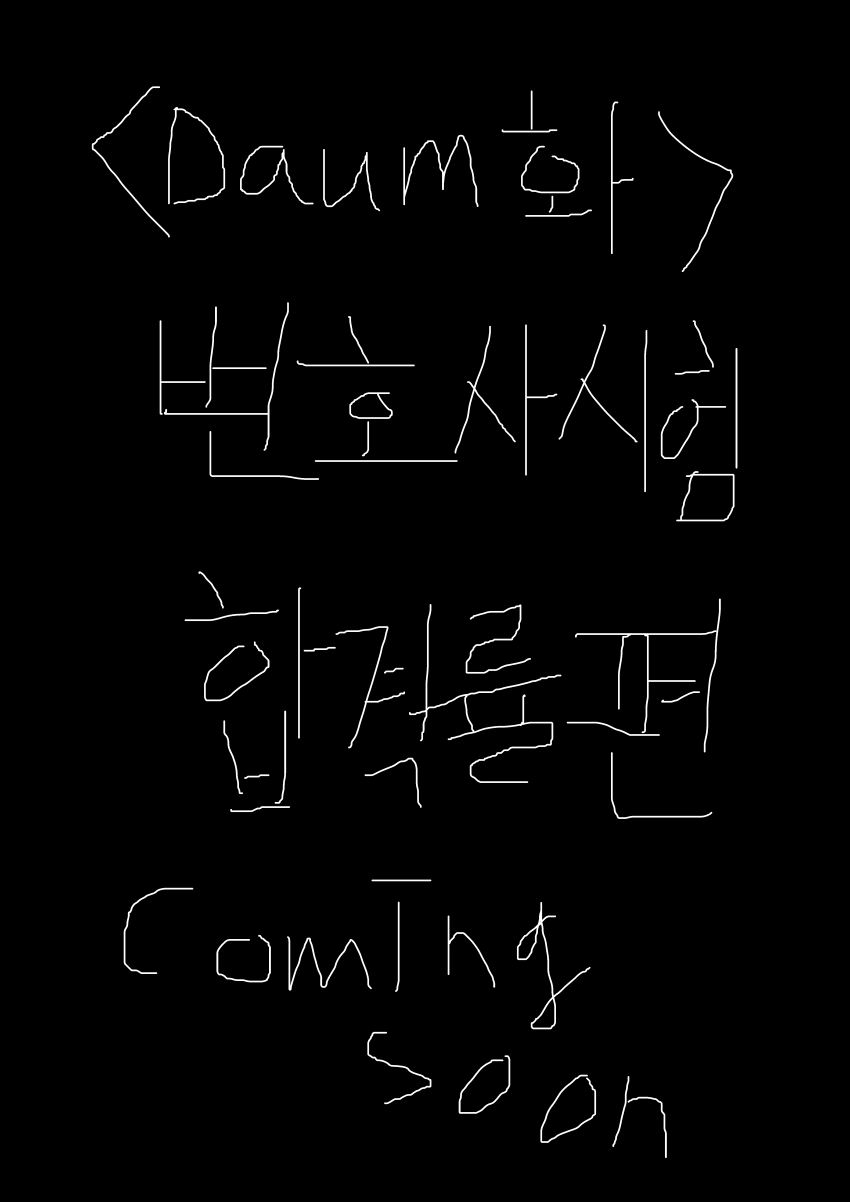 <Daum화>
변호사시험
합격률편
Coming
soon